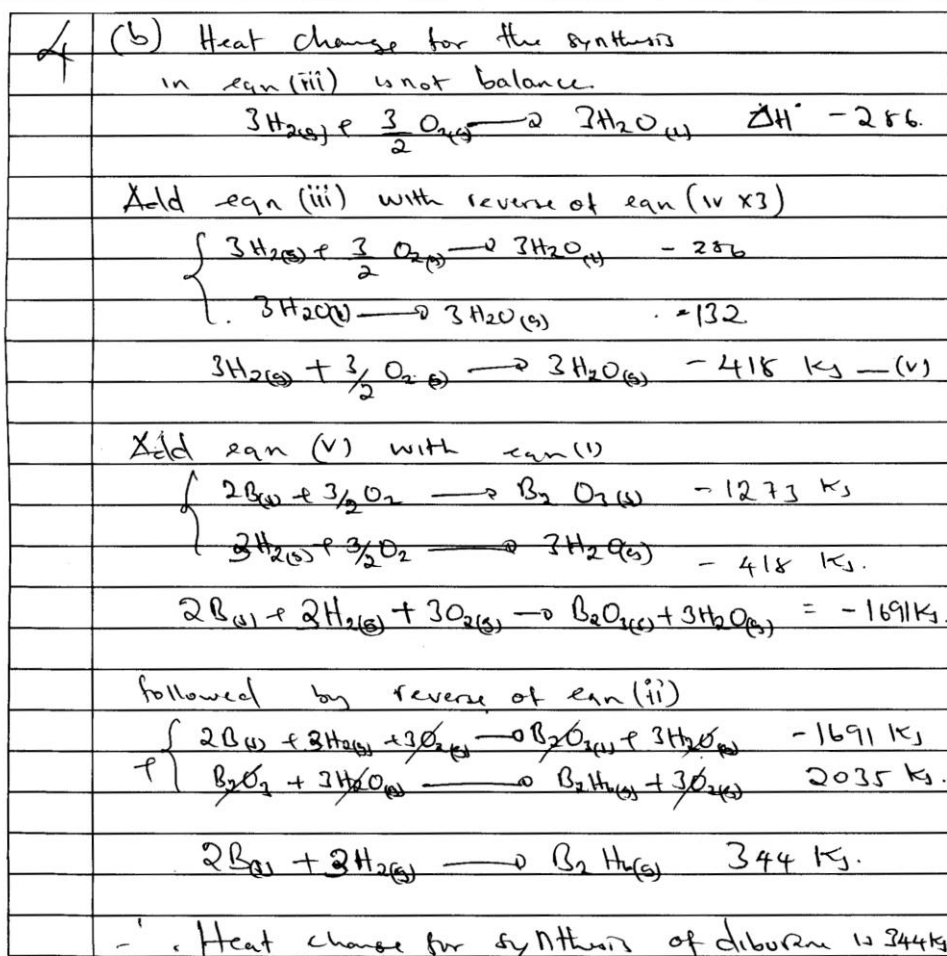 4 (b) Heat change for the synthesis
in eqn (iii) is not balance.
3H₂(g) + 3/2 O₂(g) → 3H₂O(l) ΔH° -286.
Add eqn (iii) with reverse of eqn (iv x3)
3H₂(g) + 3/2 O₂(g) → 3H₂O(l) - 286
3H₂O(l) → 3H₂O(g) -132
3H₂(g) + 3/2 O₂(g) → 3H₂O(g) - 418 KJ — (v)
Add eqn (v) with eqn (i)
2B(s) + 3/2 O₂ → B₂O₃(s) - 1273 KJ
3H₂(g) + 3/2 O₂ → 3H₂O(g) - 418 KJ.
2B(s) + 3H₂(g) + 3O₂(g) → B₂O₃(s) + 3H₂O(g) = -1691KJ.
followed by reverse of eqn (ii)
2B(s) + 3H₂(g) + 3O₂(g) → B₂O₃(s) + 3H₂O(g) -1691 KJ
+ B₂O₃ + 3H₂O(g) → B₂H₆(g) + 3O₂(g) 2035 KJ.
2B(s) + 3H₂(g) → B₂H₆(g) 344 KJ.
∴ Heat change for synthesis of diborane is 344KJ